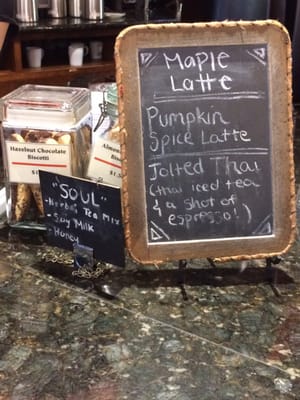 Maple
Latte
Pumpkin
Spice Latte
Jolted Thai
(thai iced tea
& a shot of
espresso!)
Hazelnut Chocolate
Biscotti
"SOUL"
- Herbal Tea Mix
- Soy Milk
- Honey